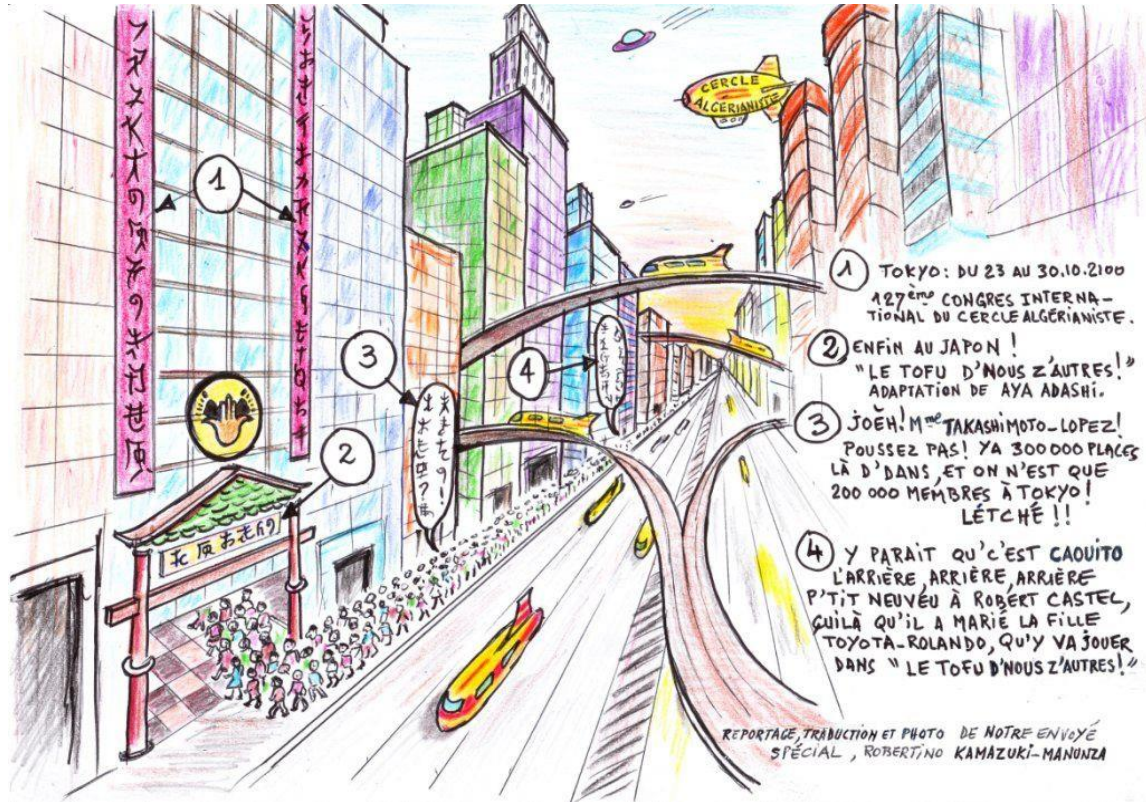 CERCLE
ALGERIANISTE
1
3
4
2
1 TOKYO: DU 23 AU 30.10.2100
127ème CONGRES INTERNA-
TIONAL DU CERCLE ALGÉRIANISTE.
2 ENFIN AU JAPON !
"LE TOFU D'NOUS Z'AUTRES!"
ADAPTATION DE AYA ADASHI.
3 JOËH! Mme TAKASHIMOTO-LOPEZ!
POUSSEZ PAS! YA 300 000 PLACES
LÀ D'DANS, ET ON N'EST QUE
200 000 MEMBRES À TOKYO!
LÉTCHÉ !!
4 Y PARAIT QU'C'EST CAOUITO
L'ARRIÈRE, ARRIÈRE, ARRIÈRE
P'TIT NEUVÉU À ROBERT CASTEL,
ÇUILÀ QU'IL A MARIE LA FILLE
TOYOTA-ROLANDO, QU'Y VA JOUER
DANS "LE TOFU D'NOUS Z'AUTRES!"
REPORTAGE, TRADUCTION ET PHOTO DE NOTRE ENVOYÉ
SPÉCIAL, ROBERTINO KAMAZUKI-MANUNZA